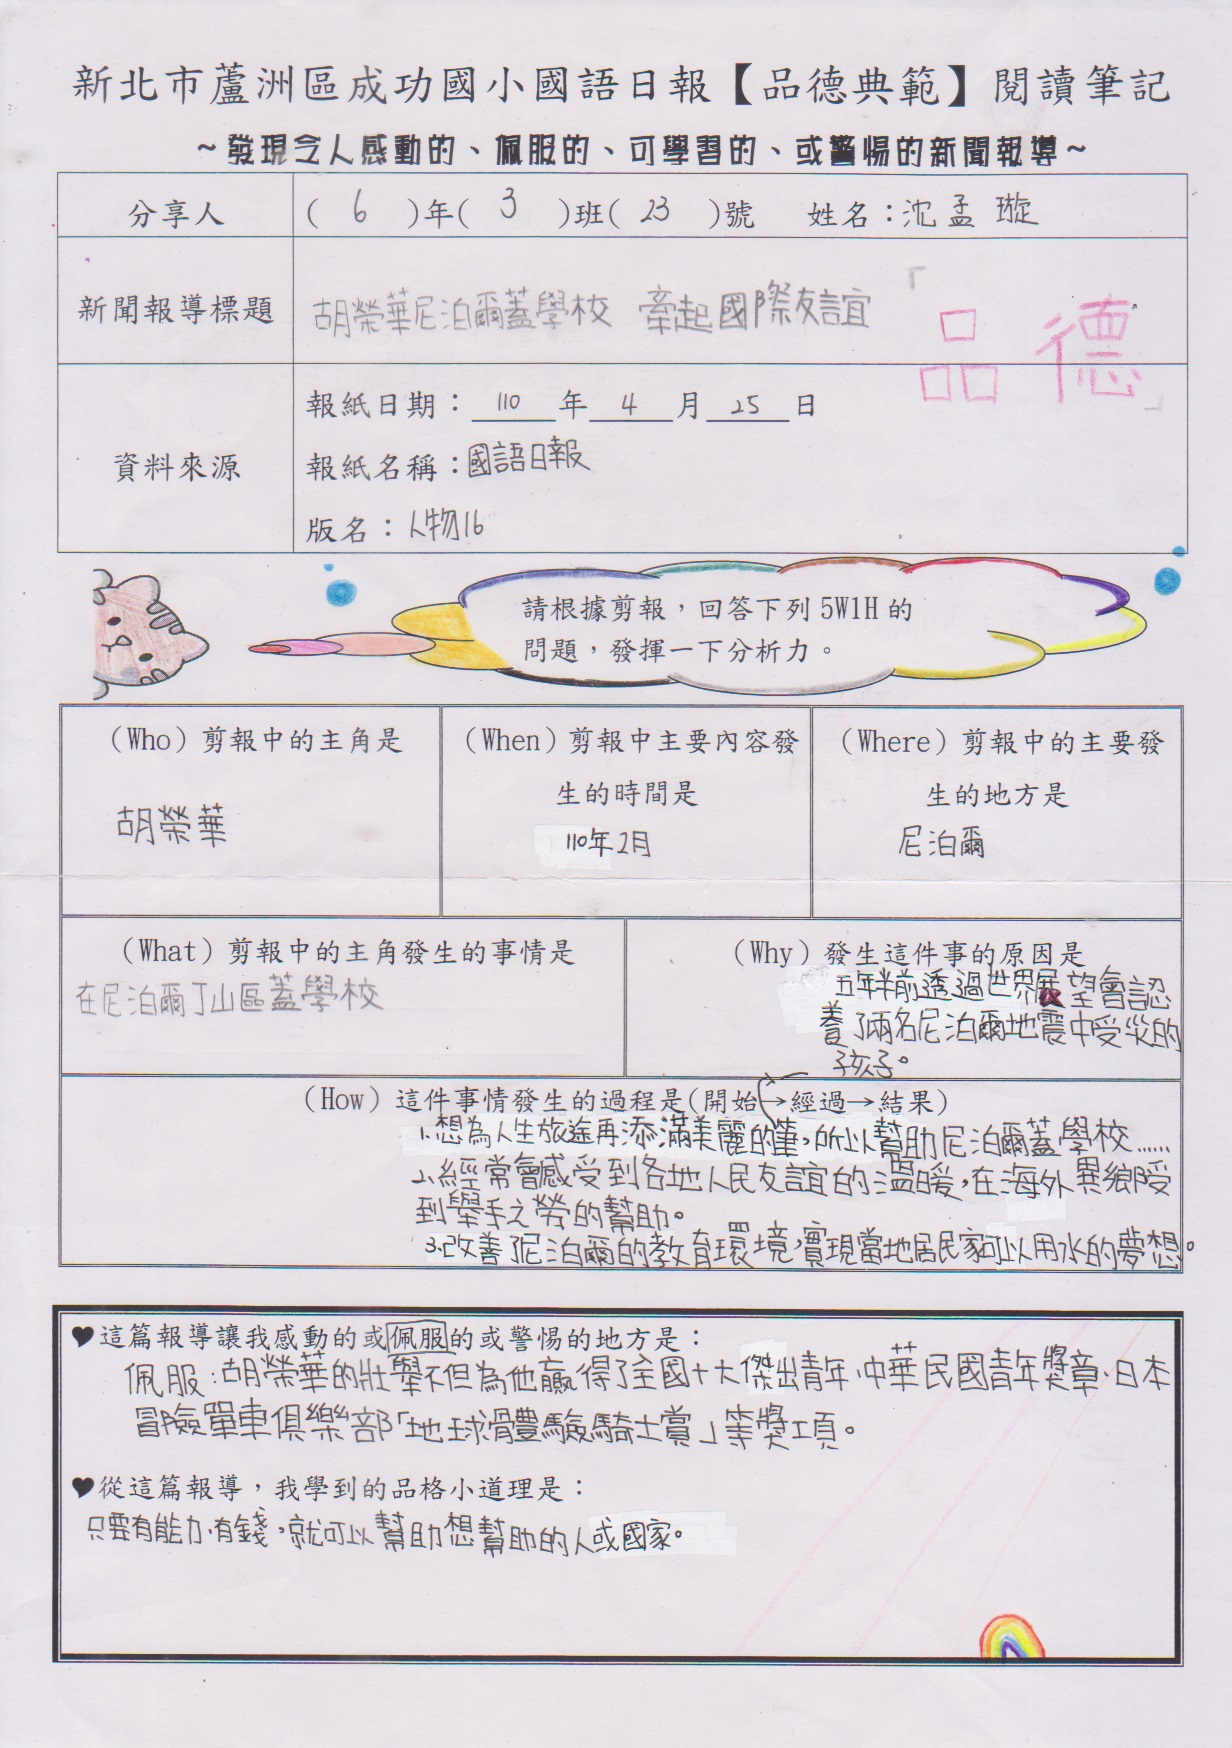 新北市蘆洲區成功國小國語日報【品德典範】閱讀筆記
~發現令人感動的、佩服的、可學習的、或警惕的新聞報導~
分享人
( 6 )年( 3 )班( 23 )號 姓名：沈孟璇
新聞報導標題
胡榮華尼泊爾蓋學校 牽起國際友誼
「品德」
資料來源
報紙日期：110年4月25日
報紙名稱：國語日報
版名：人物16
請根據剪報，回答下列5W1H的
問題，發揮一下分析力。
(Who) 剪報中的主角是
胡榮華
(When) 剪報中主要內容發
生的時間是
110年2月
(Where) 剪報中的主要發
生的地方是
尼泊爾
(What) 剪報中的主角發生的事情是
在尼泊爾丁山區蓋學校
(Why) 發生這件事的原因是
五年半前透過世界展望會認
養了兩名尼泊爾地震中受災的
孩子。
(How) 這件事情發生的過程是(開始→經過→結果)
1.想為人生旅途再添滿美麗的筆，所以幫助尼泊爾蓋學校……
2.經常會感受到各地人民友誼的溫暖，在海外異鄉受
到舉手之勞的幫助。
3.改善了尼泊爾的教育環境，實現當地居民家可以用水的夢想。
♥這篇報導讓我感動的或佩服的或警惕的地方是：
佩服：胡榮華的壯舉不但為他贏得了全國十大傑出青年、中華民國青年獎章、日本
冒險單車俱樂部「地球體驗騎士賞」等獎項。
♥從這篇報導，我學到的品格小道理是：
只要有能力、有錢，就可以幫助想幫助的人或國家。